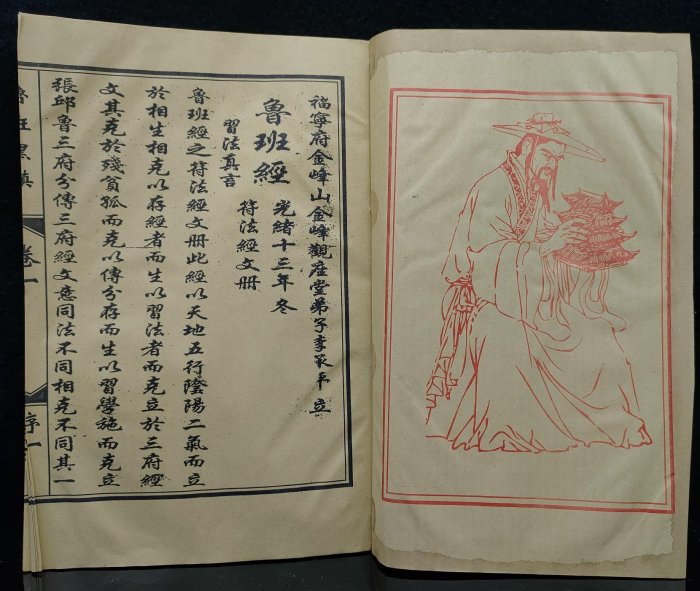 福寧府金峰山金峰觀座堂弟子李家平立
魯班經 光緒十三年冬
習法真言
符法經文册
魯班經之符法經文册此經以天地五行陰陽二氣而立
於相生相克以存經者而生以習法者而克立於三府經
文其克於殘貧孤而克以傳分存而生以習學施而克立
張邱魯三府分傳三府經文意同法不同相克不同其一
魯班黑
卷一
序一